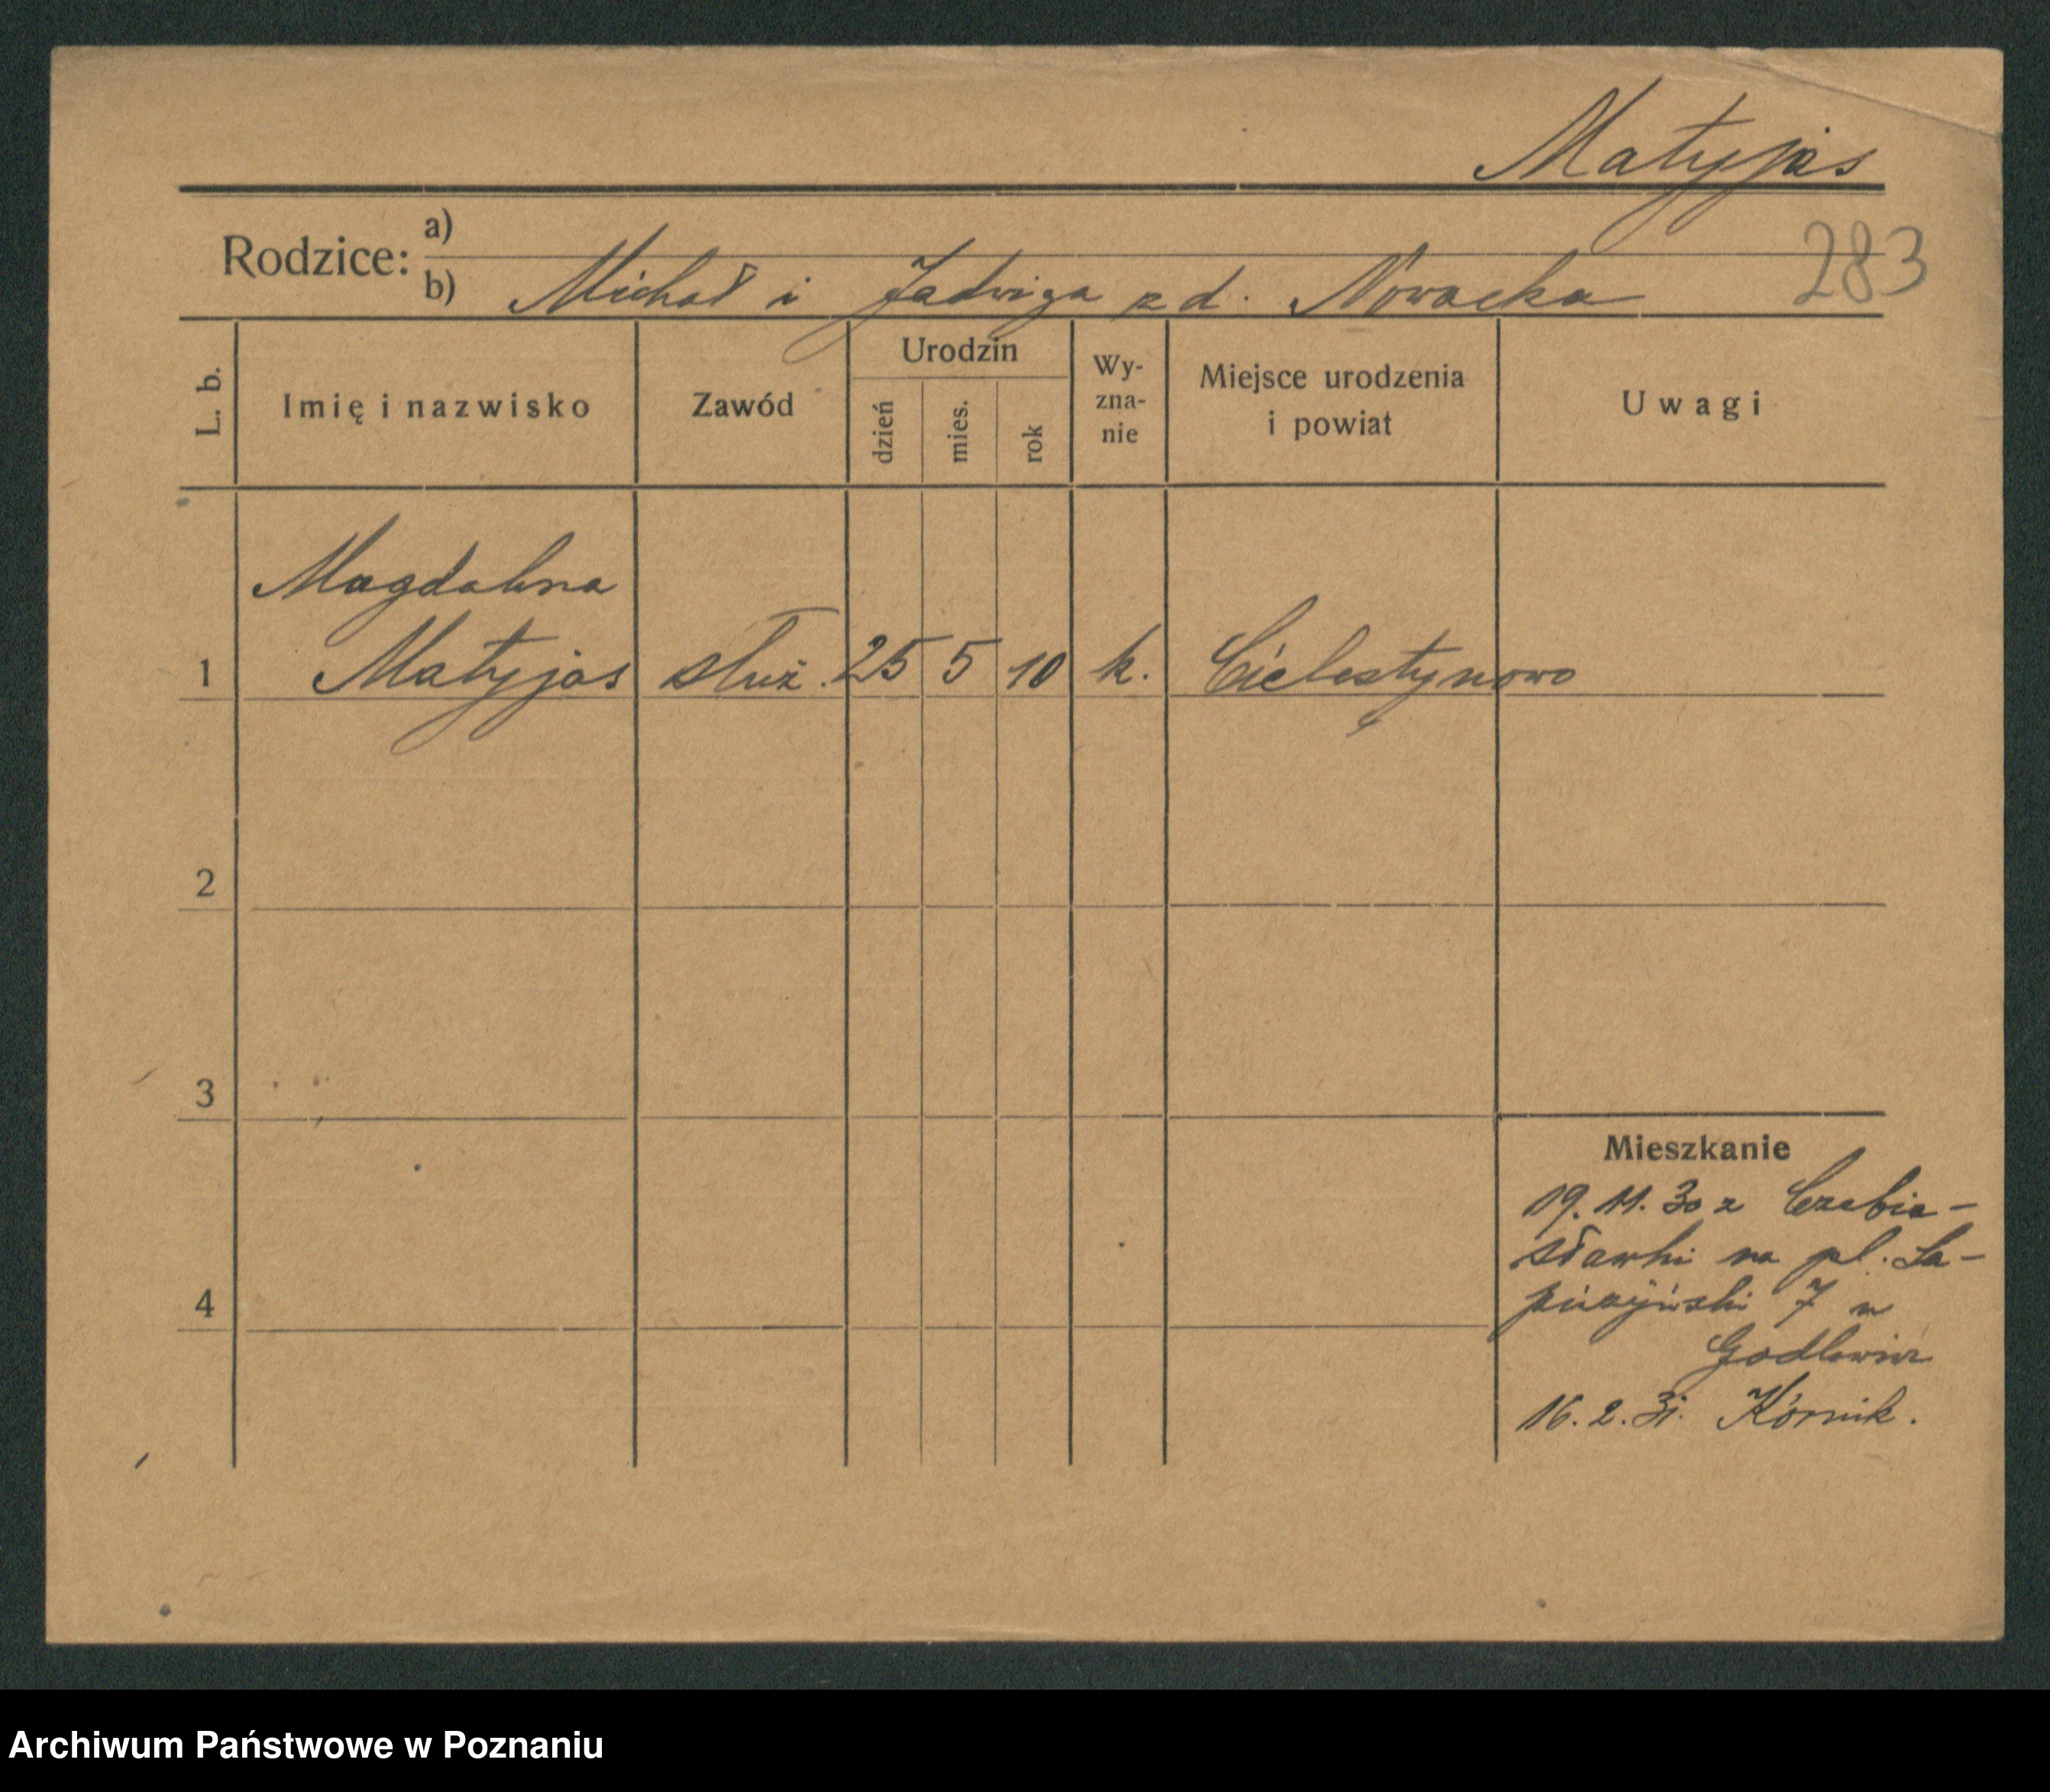 Matyjas
283
Rodzice: a)
b) Michał i Jadwiga z d. Nowacka
L. b. Imię i nazwisko Zawód Urodzin dzień mies. rok Wy-zna-nie Miejsce urodzenia i powiat Uwagi
Magdalena
1 Matyjas służ. 25 5 10 k. Celestynowo
2
3
Mieszkanie
19. 11. 30 z Czebie-
sławki na pl. Sa-
pieżyński 7 u
4
16. 2. 31. Kórnik.
Archiwum Państwowe w Poznaniu